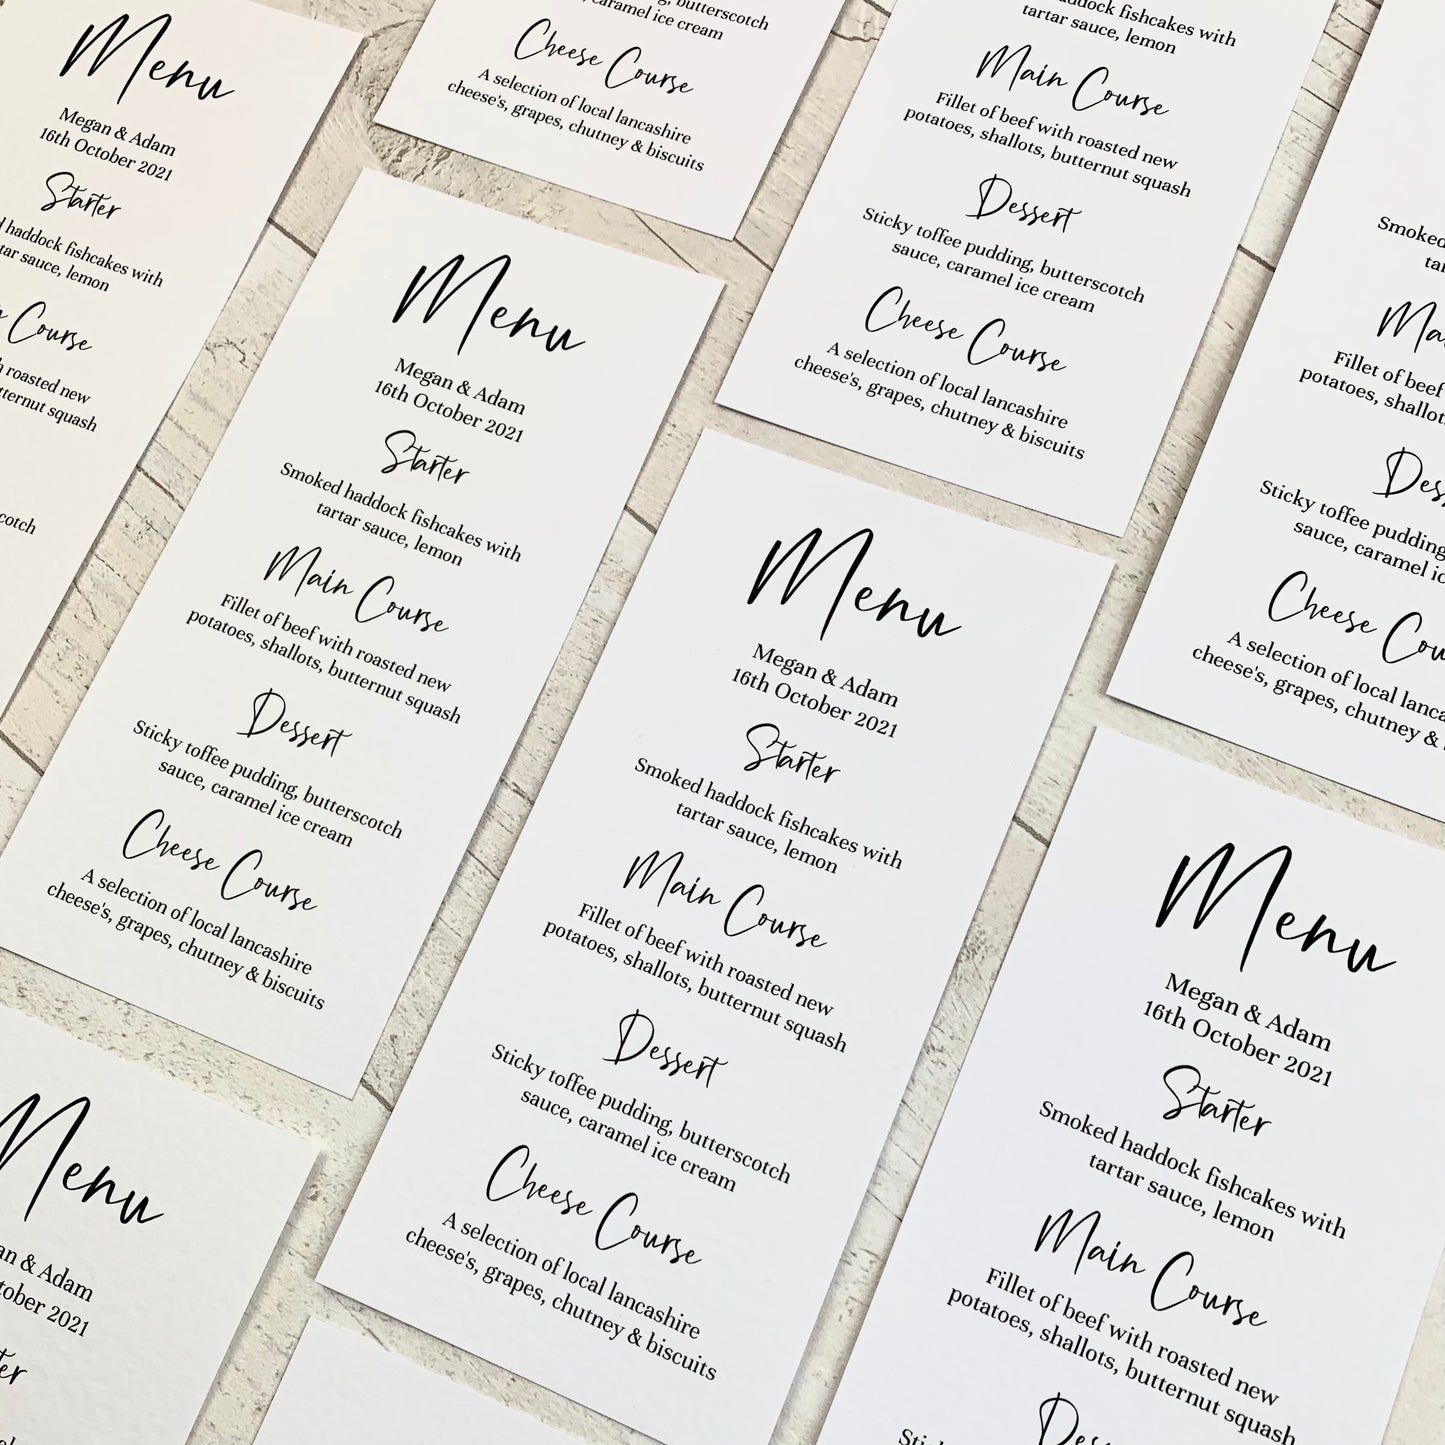 Menu
Megan & Adam
16th October 2021
Starter
haddock fishcakes with
tar sauce, lemon
Course
roasted new
tternut squash
scotch
caramel ice cream
butterscotch
Cheese Course
A selection of local lancashire
cheese's, grapes, chutney & biscuits
fishcakes with
tartar sauce, lemon
Main Course
Fillet of beef with roasted new
potatoes, shallots, butternut squash
Dessert
Sticky toffee pudding, butterscotch
sauce, caramel ice cream
Cheese Course
A selection of local lancashire
cheese's, grapes, chutney & biscuits
Smoked
Fillet of beef
potatoes, shallot
Sticky toffee pudding
sauce, caramel ic
Cheese Cou
A selection of local lanca
cheese's, grapes, chutney &
Menu
Megan & Adam
16th October 2021
Starter
Smoked haddock fishcakes with
tartar sauce, lemon
Main Course
Fillet of beef with roasted new
potatoes, shallots, butternut squash
Dessert
Sticky toffee pudding, butterscotch
sauce, caramel ice cream
Cheese Course
A selection of local lancashire
cheese's, grapes, chutney & biscuits
Menu
Megan & Adam
16th October 2021
Starter
Smoked haddock fishcakes with
tartar sauce, lemon
Main Course
Fillet of beef with roasted new
potatoes, shallots, butternut squash
Dessert
Sticky toffee pudding, butterscotch
sauce, caramel ice cream
Cheese Course
A selection of local lancashire
cheese's, grapes, chutney & biscuits
Menu
Megan & Adam
16th October 2021
Starter
Smoked haddock fishcakes with
tartar sauce, lemon
Main Course
Fillet of beef with roasted new
potatoes, shallots, butternut squash
Menu
an & Adam
tober 2021